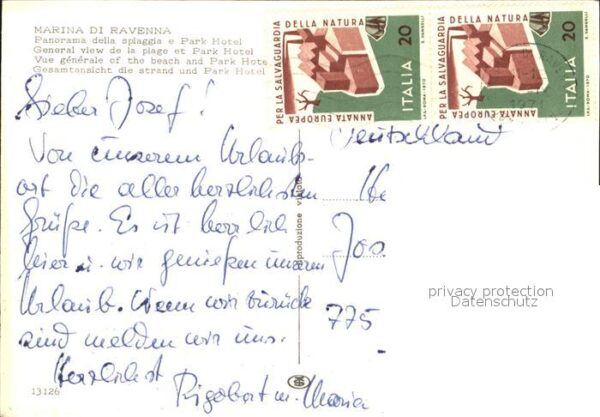 MARINA DI RAVENNA
Panorama della spiaggia e Park Hotel
General view de la plage et Park Hotel
Vue générale of the beach and Park Hote
Gesamtansicht die strand und Park Hotel
PER LA SALVAGUARDIA DELLA NATURA
ANNATA EUROPEA
ITALIA 20
I.P.S.-ROMA-1970
PER LA SALVAGUARDIA DELLA NATURA
ANNATA EUROPEA
ITALIA 20
I.P.S.-ROMA-1970
Lieber Josef!
Von unserem Urlaubs-
ort die aller herzlichsten
Grüße. Es ist herrlich
hier u. wir genießen unseren
Urlaub. Wenn wir zurück
sind melden wir uns.
Herzlichst
Rigobert u. Maria
Deutschland
775
Riproduzione vietata
13126
privacy protection
Datenschutz